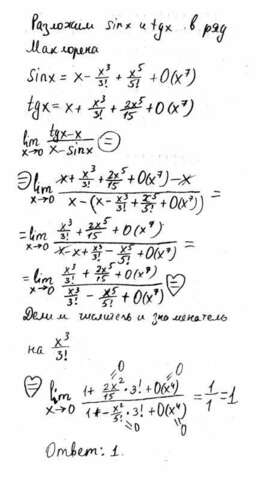 Разложим sinx и tgx в ряд
Маклорена
sinx = x - x³/3! + x⁵/5! + O(x⁷)
tgx = x + x³/3! + 2x⁵/15 + O(x⁷)
lim x→0 (tgx - x)/(x - sinx) =
= lim x→0 (x + x³/3! + 2x⁵/15 + O(x⁷) - x)/(x - (x - x³/3! + x⁵/5! + O(x⁷))) =
= lim x→0 (x³/3! + 2x⁵/15 + O(x⁷))/(x - x + x³/3! - x⁵/5! + O(x⁷)) =
= lim x→0 (x³/3! + 2x⁵/15 + O(x⁷))/(x³/3! - x⁵/5! + O(x⁷)) ♡=
Делим числитель и знаменатель
на x³/3!
♡= lim x→0 (1 + 2x²/15 · 3! + O(x⁴))/(1 - x²/5! · 3! + O(x⁴)) = 1/1 = 1
Ответ: 1.